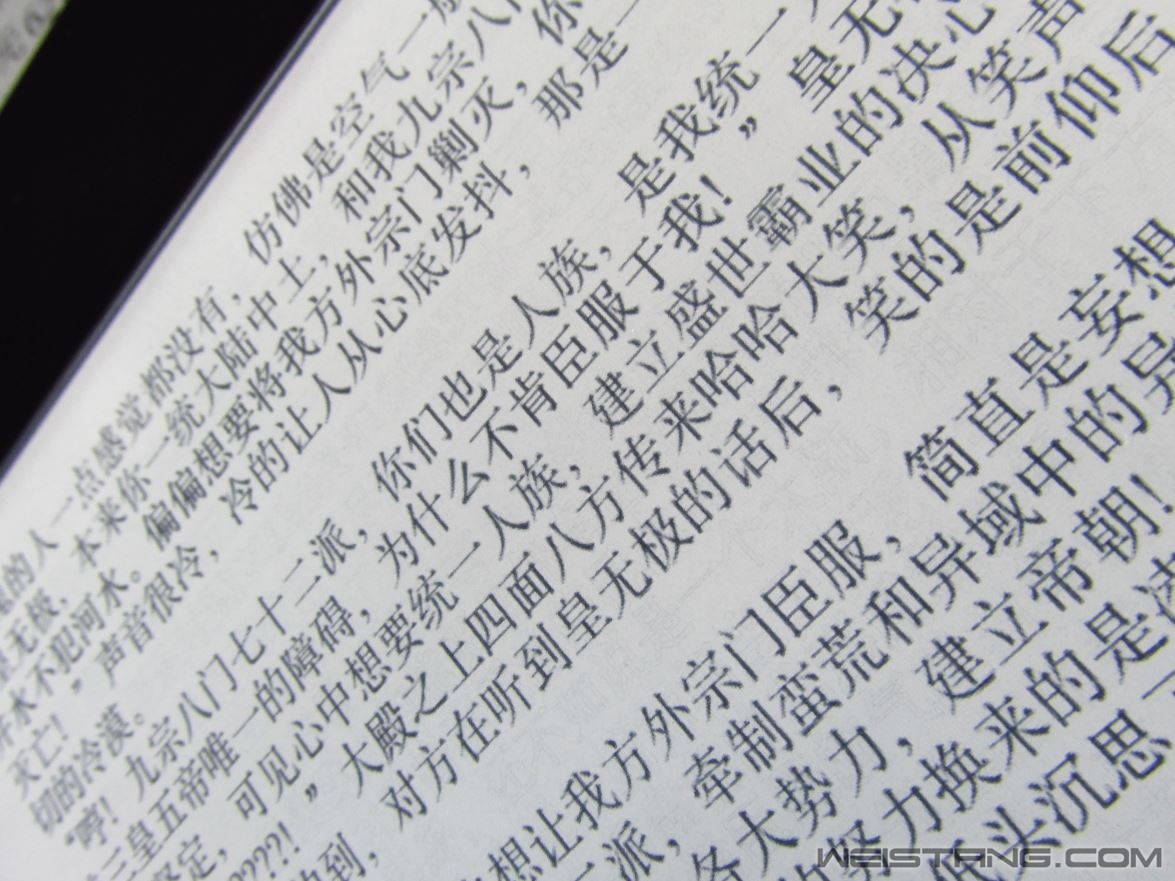 的人一点感觉都没有，仿佛是空气一般
皇无极，本来你一统大陆中土，和我九宗八门
井水不犯河水。偏偏想要将我方外宗门剿灭，你
灭亡！”声音很冷，冷的让人从心底发抖，那是一
切的冷漠。
“哼！九宗八门七十二派，你们也是人族，是我统一
三皇五帝唯一的障碍，为什么不肯臣服于我！”皇无
坚定，可见心中想要统一人族，建立盛世霸业的决心
???!”大殿之上四面八方传来哈哈大笑，从笑声
到，对方在听到皇无极的话后，笑的是前仰后
想让我方外宗门臣服，简直是妄想
二派，牵制蛮荒和异域中的异
各大势力，建立帝朝！
的努力换来的是凄
低头沉思一
WEISTANG.COM